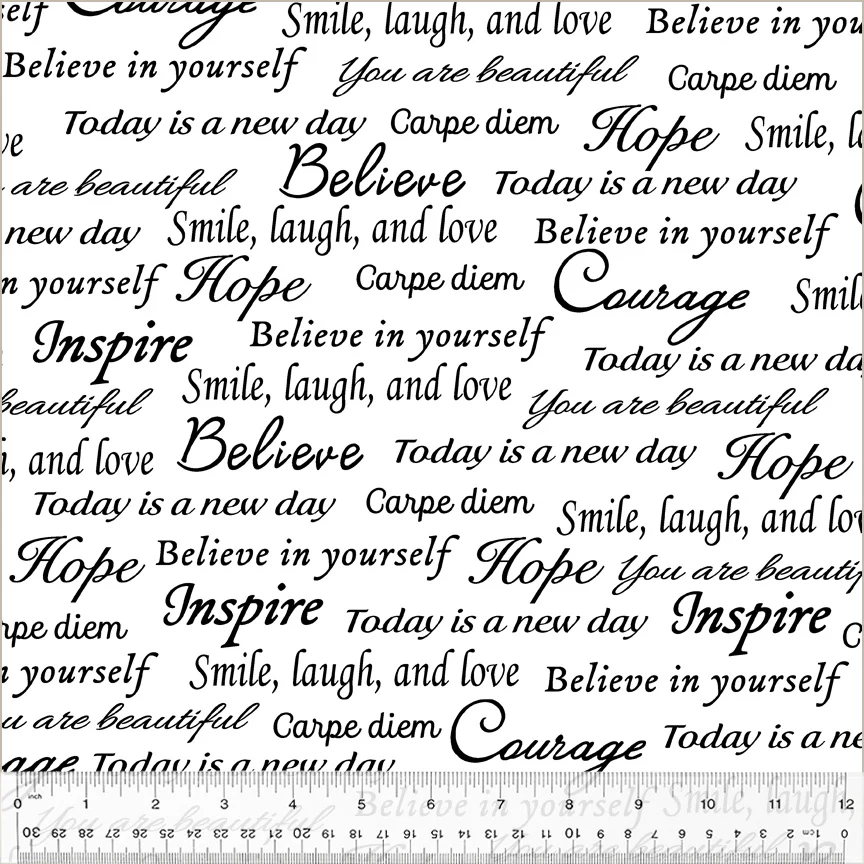 self Courage Smile, laugh, and love Believe in you
Believe in yourself You are beautiful Carpe diem
Today is a new day Carpe diem Hope Smile, l
ve
are beautiful Believe Today is a new day
new day Smile, laugh, and love Believe in yourself
n yourself Hope Carpe diem Courage Smil
Inspire Believe in yourself Today is a new da
beautiful Smile, laugh, and love You are beautiful
h, and love Believe Today is a new day Hope
Today is a new day Carpe diem Smile, laugh, and lov
Hope Believe in yourself Hope You are beautif
rpe diem Inspire Today is a new day Inspire C
n yourself Smile, laugh, and love Believe in yourself
u are beautiful Carpe diem Courage Today is a ne
age Today is a new day
0 inch 1 2 3 4 5 6 7 8 9 10 11 12
Believe in yourself Smile, laugh,
You are beautiful
30 29 28 27 26 25 24 23 22 21 20 19 18 17 16 15 14 13 12 11 10 9 8 7 6 5 4 3 2 1cm 0
You are beautiful